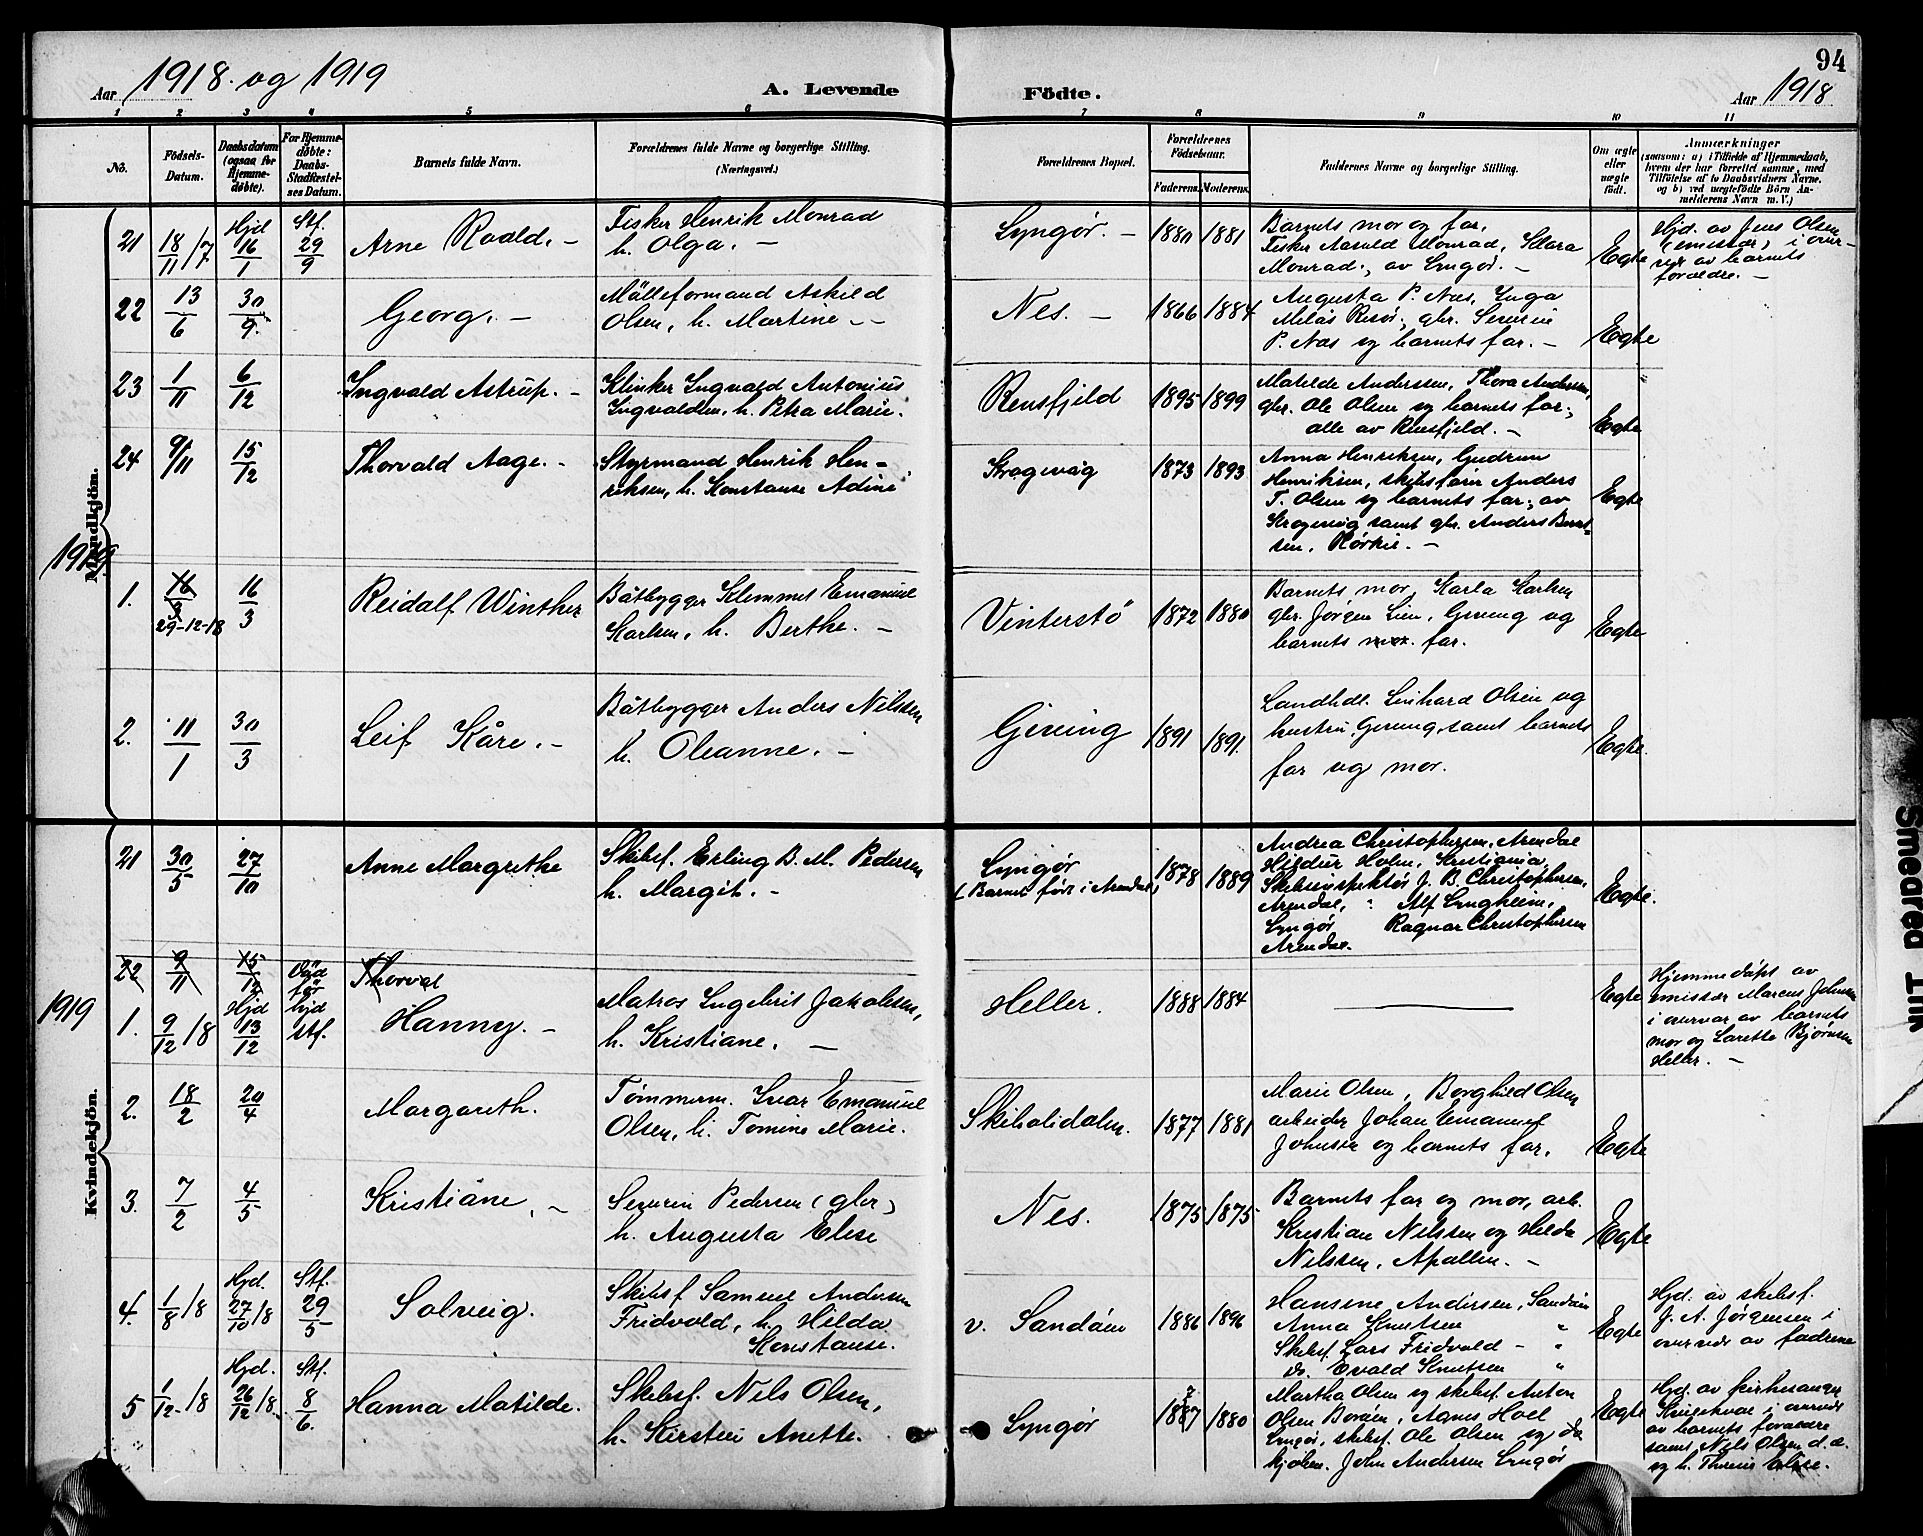 94
Aar 1918 og 1919
A. Levende
Födte.
Aar 1918
1 2 3 4 5 6 7 8 9 10 11
No.
Födsels-
Datum.
Daabsdatum
(ogsaa for
Hjemme-
döbte).
For Hjemme-
döbte:
Daabs-
Stadfæstel-
ses Datum.
Barnets fulde Navn.
Forældrenes fulde Navne og borgerlige Stilling.
(Næringsvei.)
Forældrenes Bopæl.
Forældrenes
Födselsaar.
Faderens. Moderens.
Faddernes Navne og borgerlige Stilling.
Om ægte
eller
uægte
födt.
Anmærkninger
(saasom: a) i Tilfælde af Hjemmedaab,
hvem der har forrettet samme, med
Tilföielse af to Daabsvidners Navne.
og b) ved uægtefödte Börn An-
melderens Navn m. V.)
Mandkjön.
21 18/11 /7 7 Hjd 16/1 Stf. 29/9
Arne Roald. -
Fisker Henrik Monrad
h. Olga. -
Lyngör. -
1880 1881
Barnets mor og far,
Fisker Monrad, Klara
Monrad., av Lyngör. -
Egte
Hjd. av Jens Olsen
(emissær) i over-
vær av barnets
forældre. -
22 13/6 30/9.
Georg. -
Mölleformand Askild
Olsen, h. Martine - -
Nes. -
1866 1884
Augusta P. Næs, Inga
Risör., gbr. Severin
P. Næs og barnets far. -
Egte
23 1/11 6/12
Ingvald Astrup. -
Klinker Ingvald Antonius
Ingvaldsen, h. Petra Marie.
Rensfjeld
1895 1899
Matilde Anderssen, Thora Andersen,
gbr. Ole Olsen og barnets far.,
alle av Rensfjeld. -
Egte
24 9/11 15/12
Thorvald Aage. -
Styrmand Henrik Hen=
riksen, h. Konstanse Adine
Krogevåg
1873 1893
Anna Henriksen, Gudrun
Henriksen, skibsförer Anders
T. Olsen og barnets far., av
Krogevåg samt gbr. Anders Bernt=
sen, -
Egte
1919
1. 16/3 29-12-18 16/3
Reidalf Winther
Båtbygger Klemmet Emanuel
Karlsen, h. Berthe. -
Vinterstö
1872 1880
Barnets mor, Karla Karlsen
gbr. Jörgen Lien, Gjeving og
barnets mor. far.
Egte
2. 11/1 30/3
Leif Kåre. -
Båtbygger Anders Nilssen
h. Oleanne. -
Gjeving
1891 1891.
Landhdl. Linhard Olsen og
hustru, Gjeving, samt barnets
far og mor.
Egte.
Kvindekjön.
21 30/5 27/10
Anne Margrethe
Skibsf. Erling B. M. Pedersen
h. Margit. -
Lyngör
(Barnet född i Arendal)
1878 1889
Andrea Christophersen, Arendal
Hildur Holm, Kristiania,
Skibsinspektör J. B. Christophersen,
Arendal, Alf Lyngheim,
Lyngör Ragnar Christophersen
Arendal.
Egte.
22 9/11 15/12
Thorval
1919
1. 9/12 18 Hjd 13/12 Död før stf.
Hanny. -
Matros Ingebrit Jakobsen,
h. Kristiane. -
Heller.
1888 1884
Egte
Hjemmedöpt av
emissær Marcus Johnsen
i overvær av barnets
mor og Larette Björnsen
Heller. -
2. 18/2 20/4
Margareth.
Tömmerm. Ivar Emanuel
Olsen, h. Tomine Marie.
Skibolidalen.
1877 1881
Marie Olsen, Borghild Olsen
arbeider Johan Emanuel
Johnsen og barnets far.
Egte
3. 7/2 4/5
Kristiane, -
Severin Pedersen (gbr)
h. Augusta Elise
Nes.
1875 1875
Barnets far og mor, arb.
Kristian Nilssen og Hilda
Nilssen, Apallen. -
Egte
4. 1/8 18 Hjd. 27/10 18 Stf. 29/5
Solveig.
Skibsf Samuel Andersen
Fridvold, h. Hilda
Konstanse.
v. Sandöen
1886 1896
Hansine Andersen, Sandöen
Anna Knutsen "
Skibsf. Lars Fridvold - "
do. Evald Knutsen "
Egte
Hjd. av skibsf.
J. A. Jörgensen i
overvær av fadrene
5 1/12 18 Hjd. 26/12 18. Stf. 8/6.
Hanna Matilde.
Skibsf. Nils Olsen,
h. Kirsten Anette.
Lyngör
1887 7 1880
Martha Olsen og skibsf. Anton
Olsen Boröen, Agnes Hoel
Lyngör, skibsf. Ole Olsen og
John Andersen Lyngör
Egte
Hjd. av kirkesanger
i overvær
av barnets forældre
samt Nils Olsen d. æ.
og h. Elise.
Smeared Ink